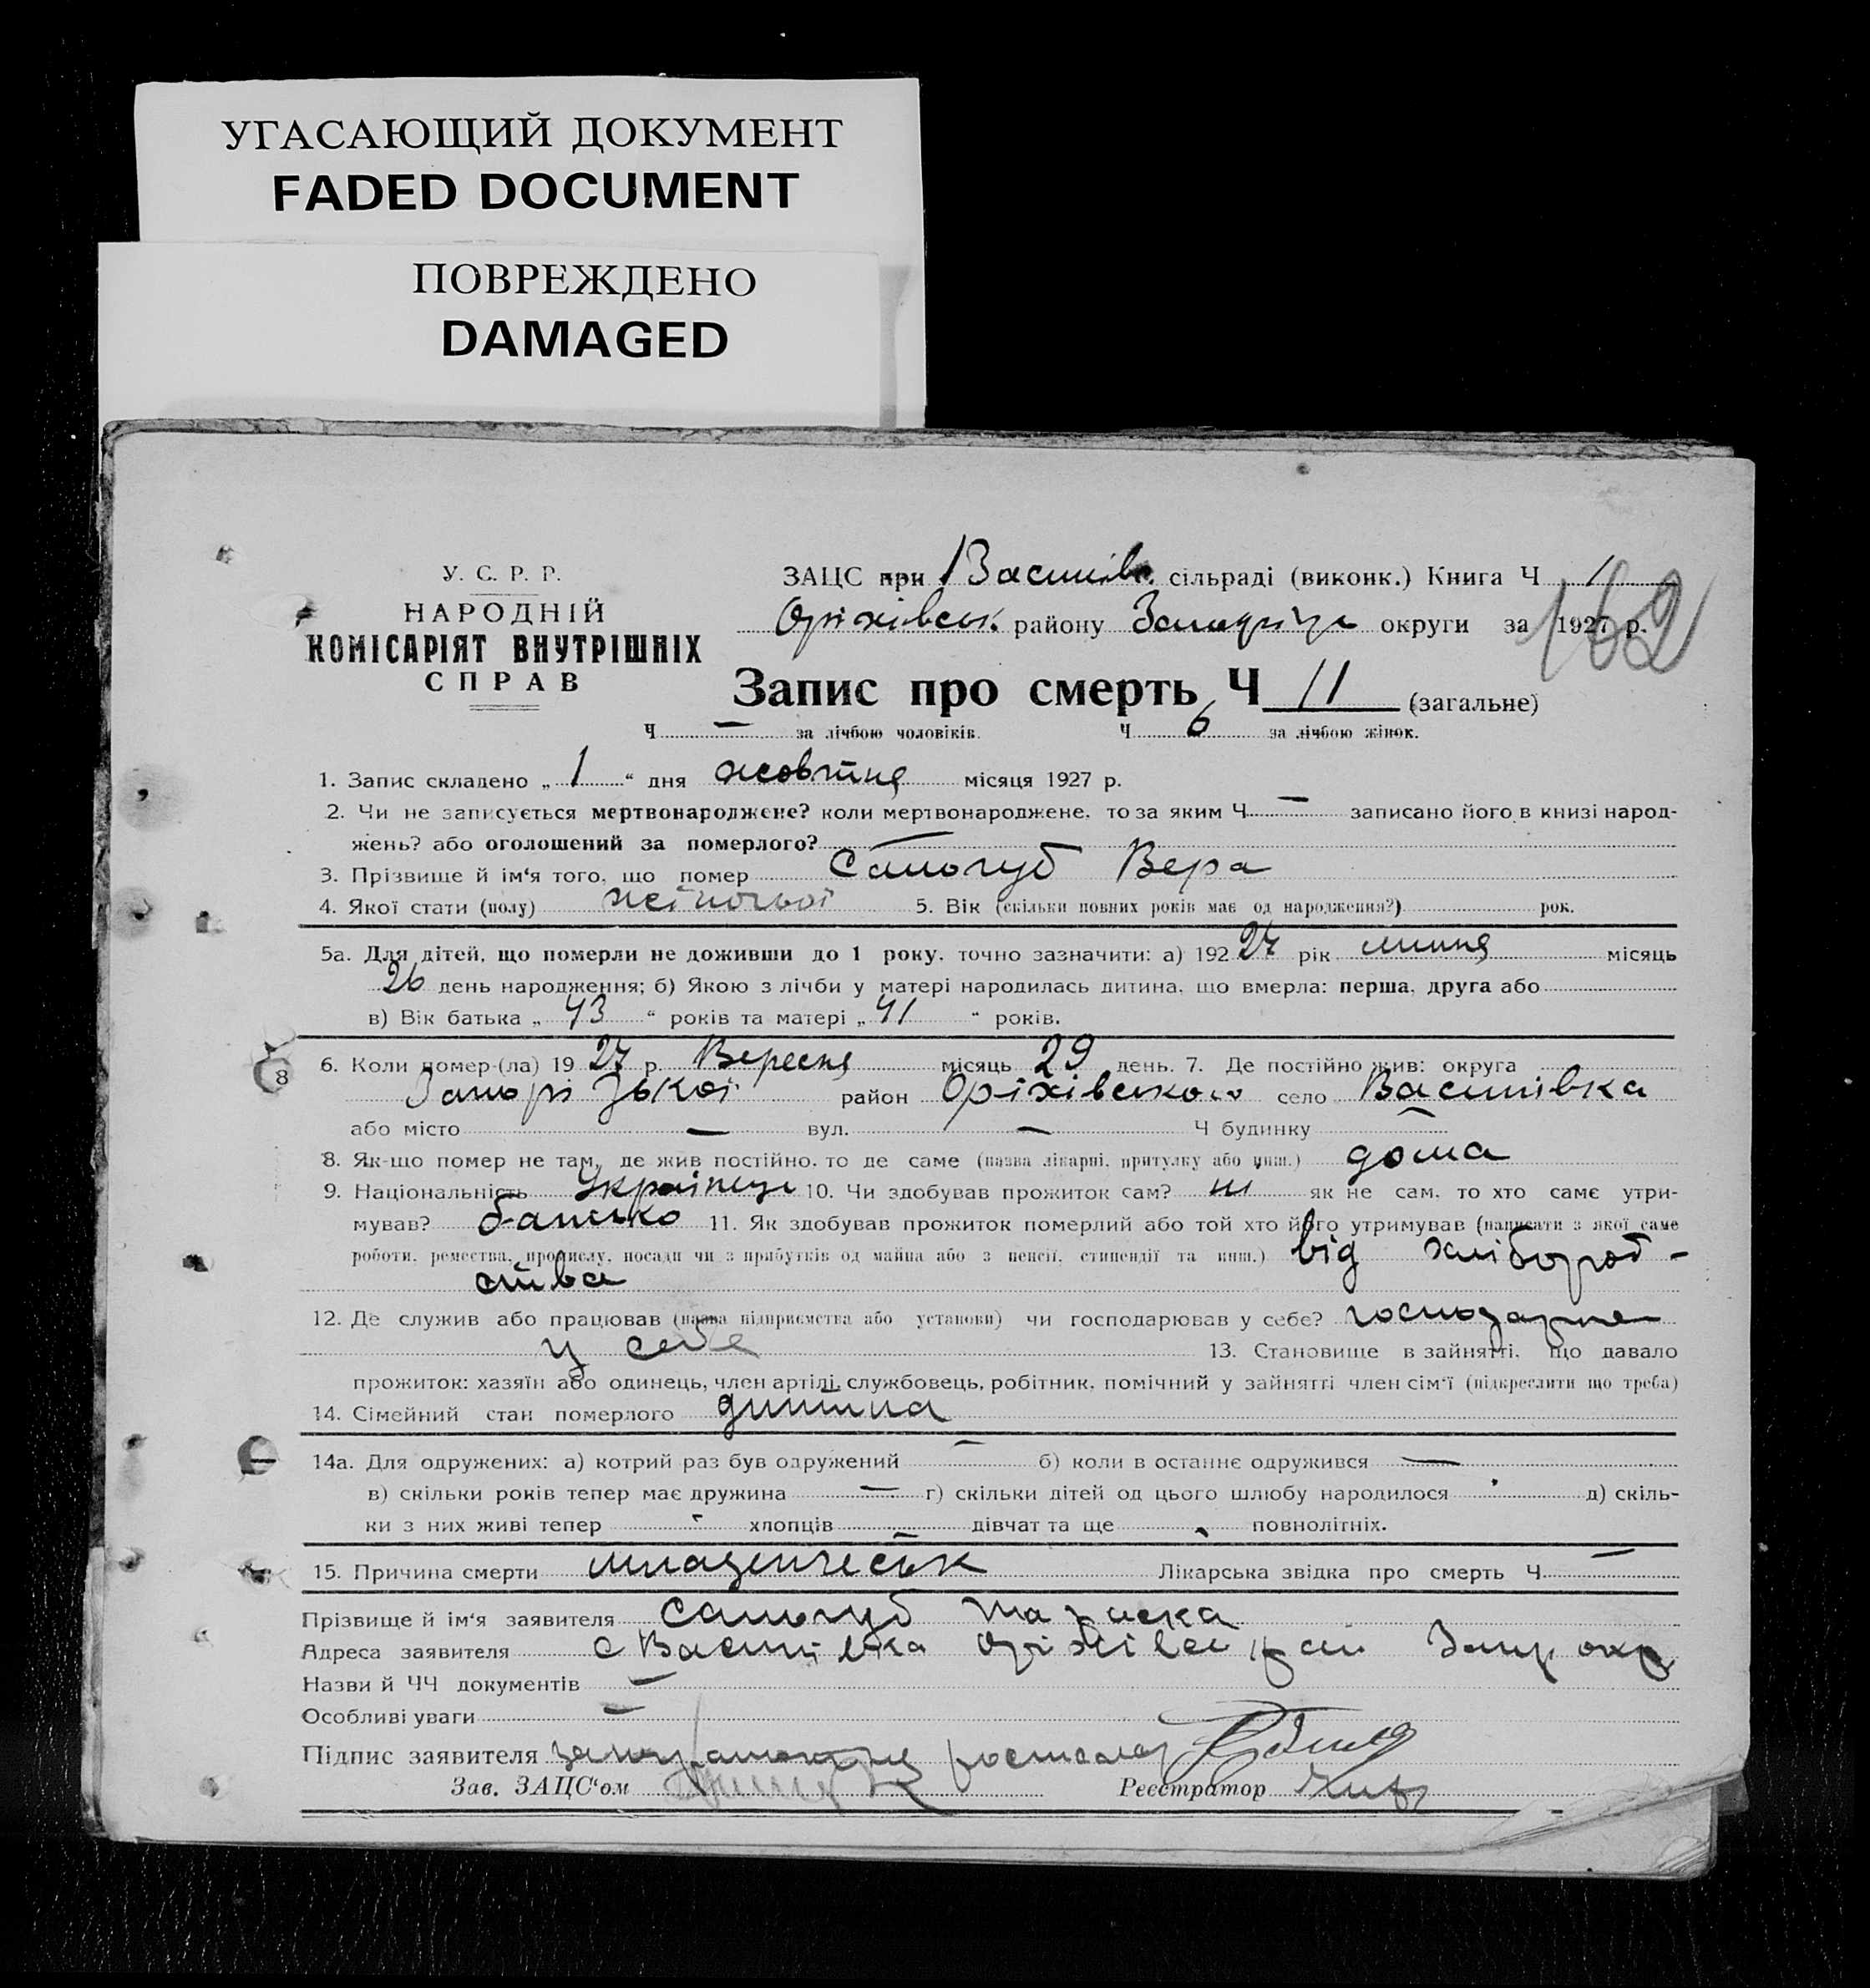 УГАСАЮЩИЙ ДОКУМЕНТ
FADED DOCUMENT
ПОВРЕЖДЕНО
DAMAGED
У. С. Р. Р.
НАРОДНІЙ
КОМІСАРІЯТ ВНУТРІШНІХ
СПРАВ
ЗАЦС при Васинів. сільраді (виконк.) Книга Ч 1
Оріхівськ. району округи за 1927 р.
162
Запис про смерть Ч 11 (загальне)
Ч — за лічбою чоловіків. Ч 6 за лічбою жінок.
1. Запис складено „ 1 “ дня жовтня місяця 1927 р.
2. Чи не записується мертвонароджене? коли мертвонароджене, то за яким Ч — записано його в книзі народ-
жень? або оголошений за померлого? —
3. Прізвище й ім‘я того, що помер Самогуб Вера
4. Якої стати (полу) жіночої 5. Вік (скільки повних років має од народження?) рок.
5а. Для дітей, що померли не доживши до 1 року, точно зазначити: а) 192 27 рік липня місяць
26 день народження; б) Якою з лічби у матері народилась дитина, що вмерла: перша, друга або
в) Вік батька „ 43 “ років та матері „ 41 “ років.
6. Коли помер (ла) 19 27 р. Вересня місяць 29 день. 7. Де постійно жив: округа
8
Запорізької район Оріхівського село Васинівка
або місто — вул. — Ч будинку —
8. Як-що помер не там, де жив постійно, то де саме (назва лікарні, притулку або инш.) дома
9. Національність Українец 10. Чи здобував прожиток сам? ні як не сам, то хто саме утри-
мував? батько 11. Як здобував прожиток померлий або той хто його утримував (написати з якої саме
роботи, ремества, промислу, посади чи з прибутків од майна або з пенсії, стипендії та инш.) від хлібороб-
ства
12. Де служив або працював (назва підприємства або установи) чи господарював у себе?
у себе 13. Становище в зайнятті, що давало
прожиток: хазяїн або одинець, член артілі, службовець, робітник, помічний у зайнятті член сім‘ї (підкреслити що треба)
14. Сімейний стан померлого дитина
14а. Для одружених: а) котрий раз був одружений — б) коли в останнє одружився —
в) скільки років тепер має дружина — г) скільки дітей од цього шлюбу народилося д) скіль-
ки з них живі тепер хлопців дівчат та ще повнолітніх.
15. Причина смерти младенческ Лікарська звідка про смерть Ч —
Прізвище й ім‘я заявителя Самогуб
Адреса заявителя с Васинівка Оріхівськ рай Запор окр
Назви й ЧЧ документів —
Особливі уваги —
Підпис заявителя
Зав. ЗАЦС‘ом Реєстратор